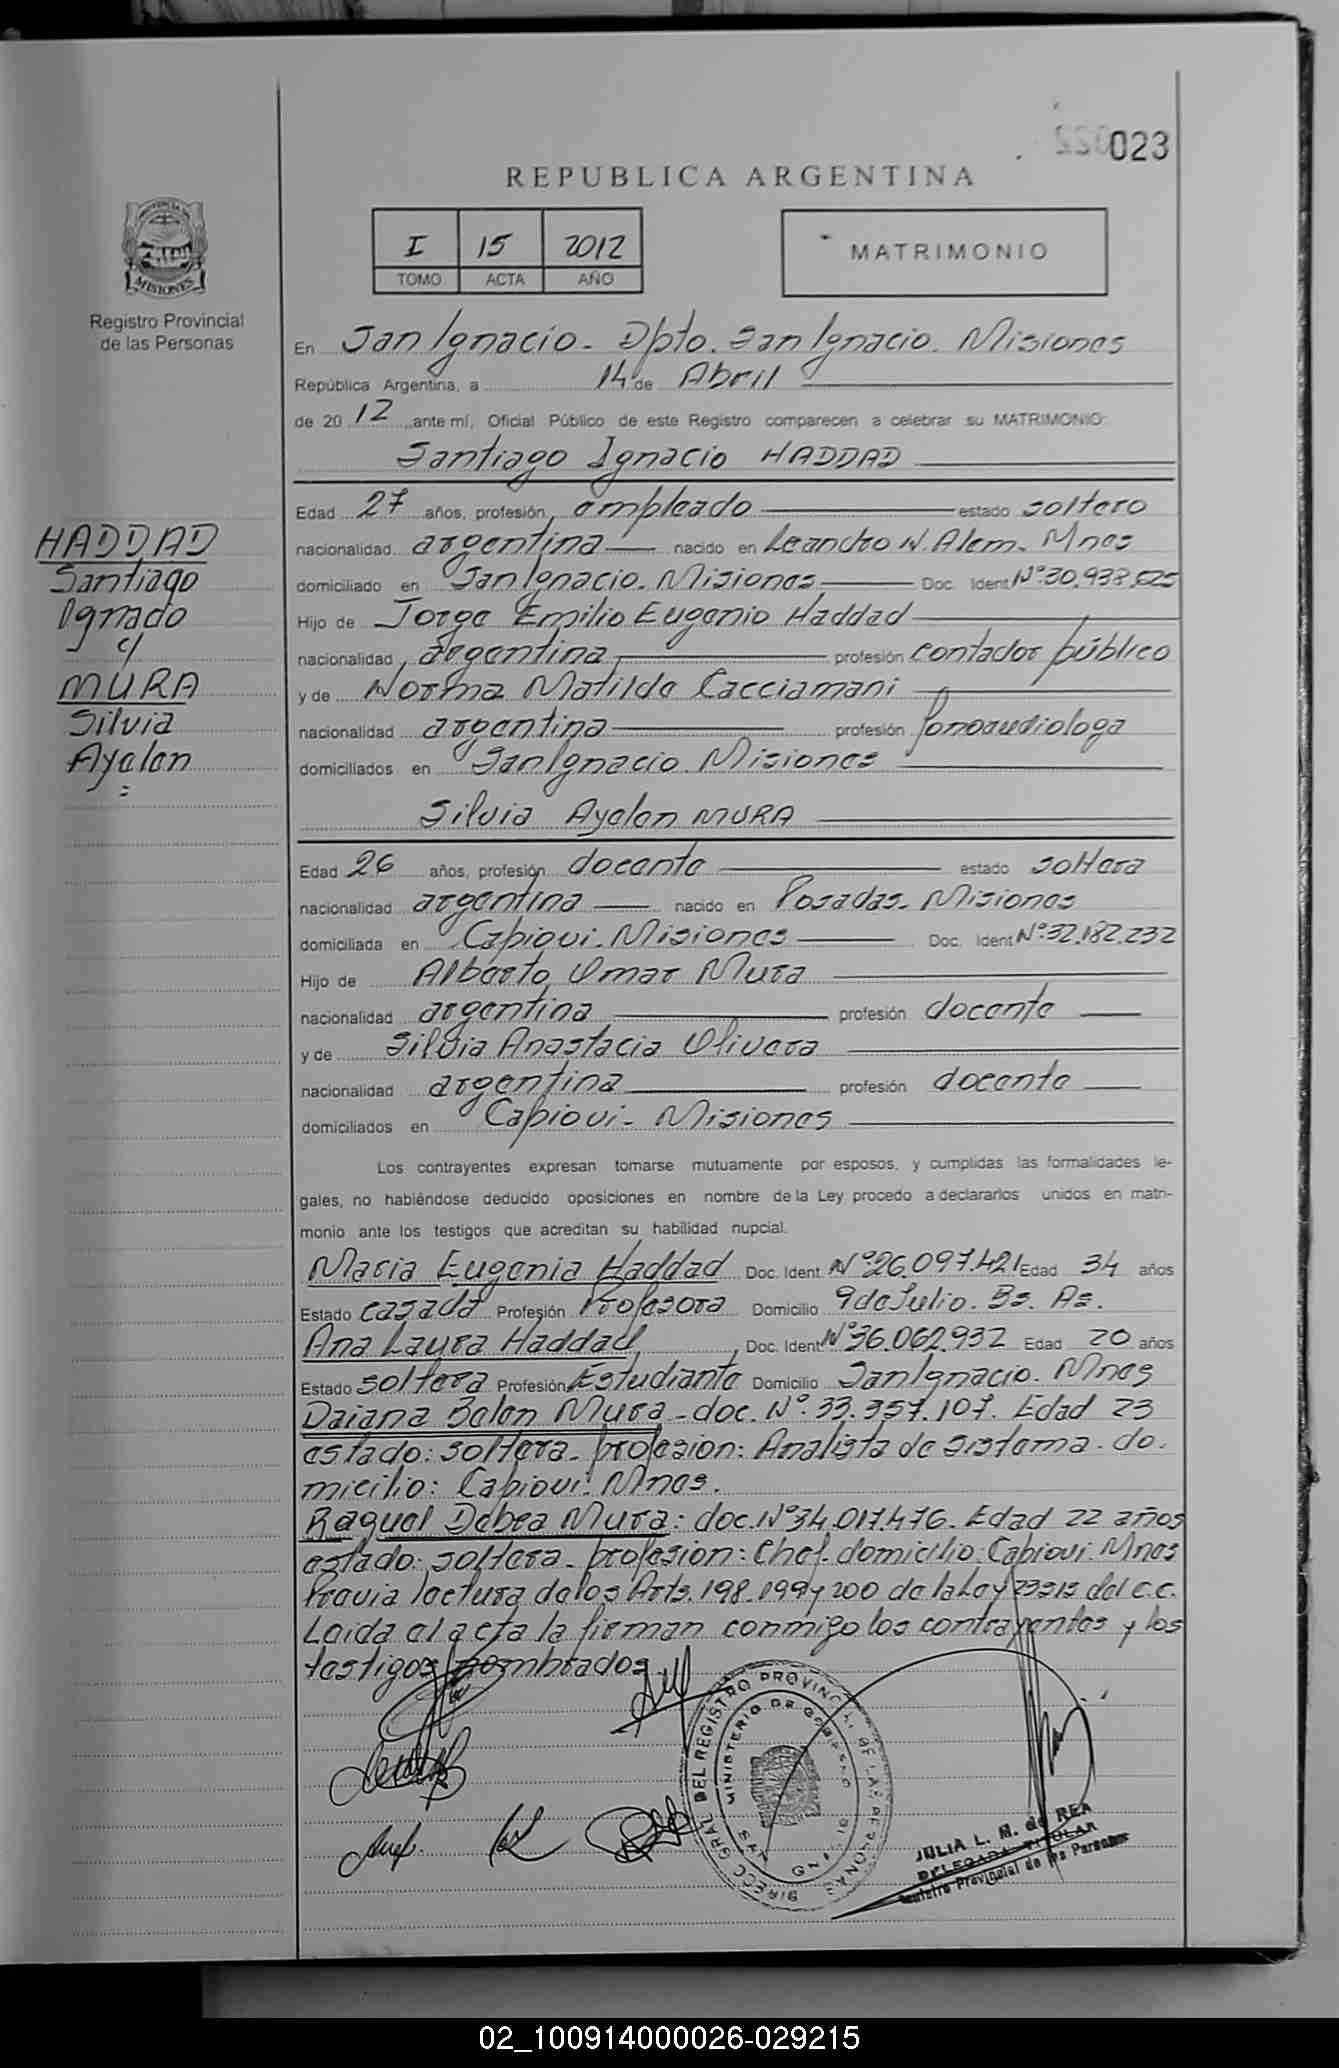 023
REPUBLICA ARGENTINA
I 15 2012
TOMO ACTA AÑO
MATRIMONIO
MISIONES
Registro Provincial
de las Personas
En San Ignacio - Dpto. San Ignacio. Misiones
República Argentina, a 14 de Abril
de 2012 ante mí, Oficial Público de este Registro comparecen a celebrar su MATRIMONIO:
Santiago Ignacio HADDAD
Edad 27 años, profesión empleado estado soltero
nacionalidad argentina nacido en Leandro N. Alem. Mnes
domiciliado en San Ignacio. Misiones Doc. Ident Nº 30.938.625
Hijo de Jorge Emilio Eugenio Haddad
nacionalidad argentina profesión contador público
y de Norma Matilde Cacciamani
nacionalidad argentina profesión fonoaudiologa
domiciliados en San Ignacio. Misiones
HADDAD
Santiago
Ignacio
c/
MURA
Silvia
Ayelen
Silvia Ayelen MURA
Edad 26 años, profesión docente estado soltera
nacionalidad argentina nacido en Posadas. Misiones
domiciliada en Capiovi. Misiones Doc. Ident Nº 32.182.232
Hijo de Alberto Omar Mura
nacionalidad argentina profesión docente
y de Silvia Anastacia Olivera
nacionalidad argentina profesión docente
domiciliados en Capiovi - Misiones
Los contrayentes expresan tomarse mutuamente por esposos, y cumplidas las formalidades le-
gales, no habiéndose deducido oposiciones en nombre de la Ley procedo a declararlos unidos en matri-
monio ante los testigos que acreditan su habilidad nupcial.
Maria Eugenia Haddad Doc. Ident Nº 26.097.421 Edad 34 años
Estado casada Profesión Profesora Domicilio 9 de Julio. Bs. As.
Ana Laura Haddad Doc. Ident Nº 36.062.932 Edad 20 años
Estado soltera Profesión Estudiante Domicilio San Ignacio. Mnes
Daiana Belen Mura - doc. Nº 33.357.107. Edad 23
estado: soltera - profesion: Analista de Sistema. do-
micilio: Capiovi. Mnes.
Raquel Debea Mura: doc. Nº 34.017.476. Edad 22 años
estado: soltera - profesion: Chef. domicilio: Capiovi. Mnes
Previa lectura de los Arts. 198. 199 y 200 de la Ley 23515 del C.C.
Leida el acta la firman conmigo los contrayentes y los
testigos nombrados.
DIRECC GRAL DEL REGISTRO PROVINCIAL DE LAS PERSONAS
MINISTERIO DE GOBIERNO
JULIA L. M. de REA
DELEGADA TITULAR
Registro Provincial de las Personas
02_100914000026-029215